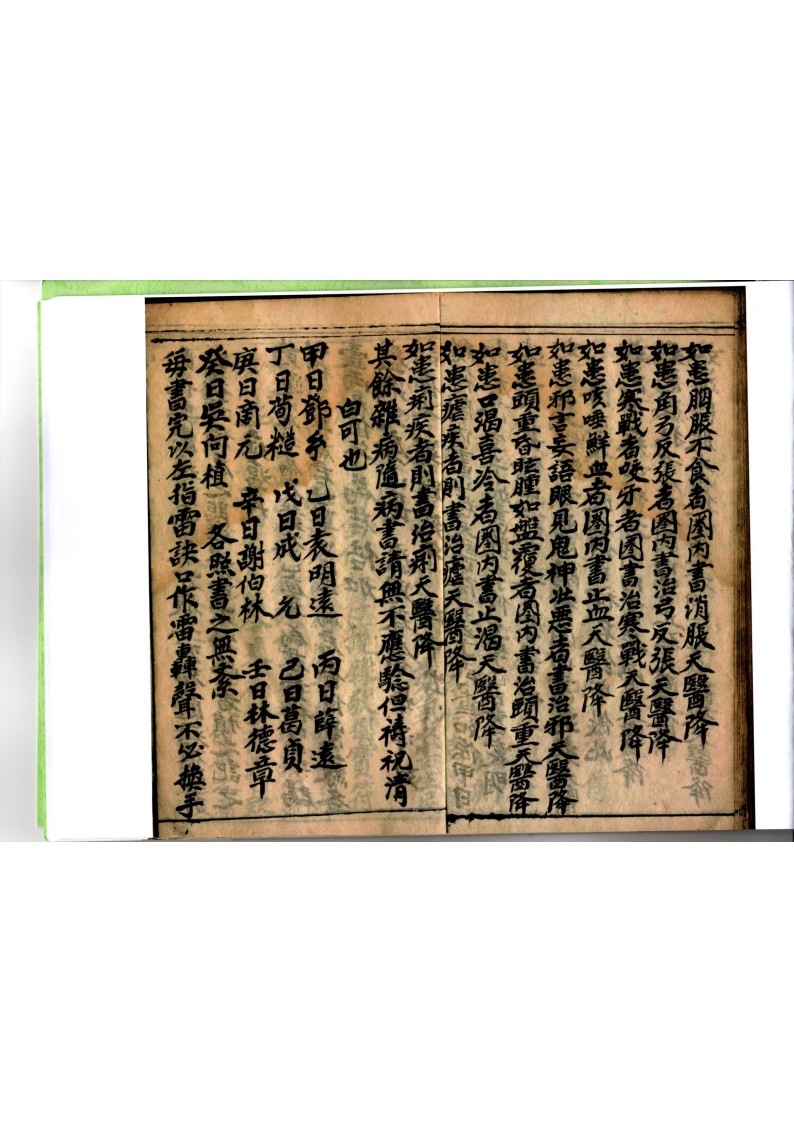 如患胭脹不食者圈内書消脹天醫降
如患角弓反張者圈内書治弓反張天醫降
如患寒戰者咬牙者圈書治寒戰天醫降
如患咳唾鮮血者圈内書止血天醫降
如患邪言妄語眼見鬼神壯惡者書治邪天醫降
如患頭重昏眩腫如盤覆者圈内書治頭重天醫降
如患口渴喜冷者圈内書止渴天醫降
如患瘧疾者則書治瘧天醫降
如患痢疾者則書治痢天醫降
其餘雜病隨病書請無不應驗但祷祝清
白可也
甲日鄧 乙日袁明遠 丙日薛遠
丁日荀 戊日成元 己日葛貞
庚日商元 辛日謝伯林 壬日林德章
癸日吳向植 各照書之無紊
每書完以左指雷訣口作雷轟聲不必換手